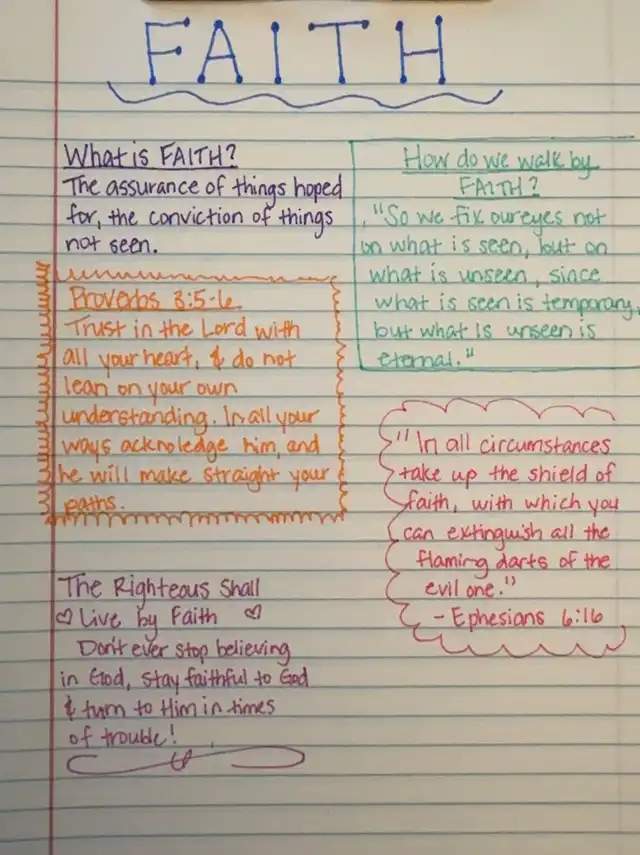 FAITH
What is FAITH?
The assurance of things hoped
for, the conviction of things
not seen.
How do we walk by
FAITH?
"So we fix our eyes not
on what is seen, but on
what is unseen, since
what is seen is temporary,
but what is unseen is
eternal."
Proverbs 3:5-6
Trust in the Lord with
all your heart, & do not
lean on your own
understanding. In all your
ways acknoledge him, and
he will make straight your
paths.
"In all circumstances
take up the shield of
faith, with which you
can extinguish all the
flaming darts of the
evil one."
- Ephesians 6:16
The Righteous Shall
♡ Live by Faith ♡
Don't ever stop believing
in God, stay faithful to God
& turn to Him in times
of trouble!